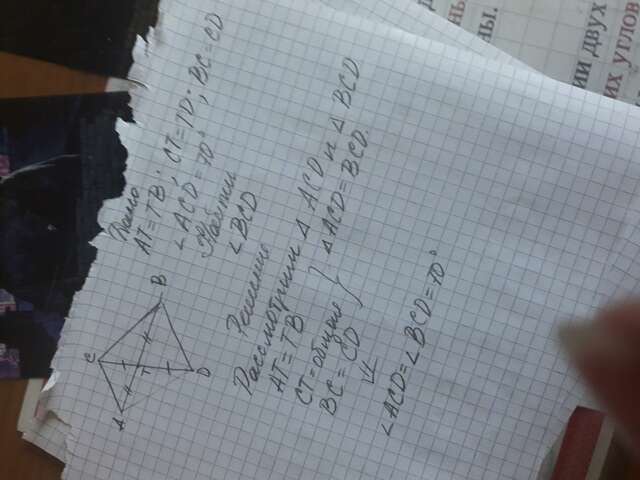 Дано
AT=TB; CT=TD; BC=CD
∠ACD=70°
Найти
∠BCD
Решение
Рассмотрим △ ACD и △ BCD
AT=TB
CT=общие } △ACD=BCD.
BC=CD
∠ACD=∠BCD=70°
C
B
A
T
D
ИИ ДВУХ
ИХ УГЛОВ
НЬ
НЫ.